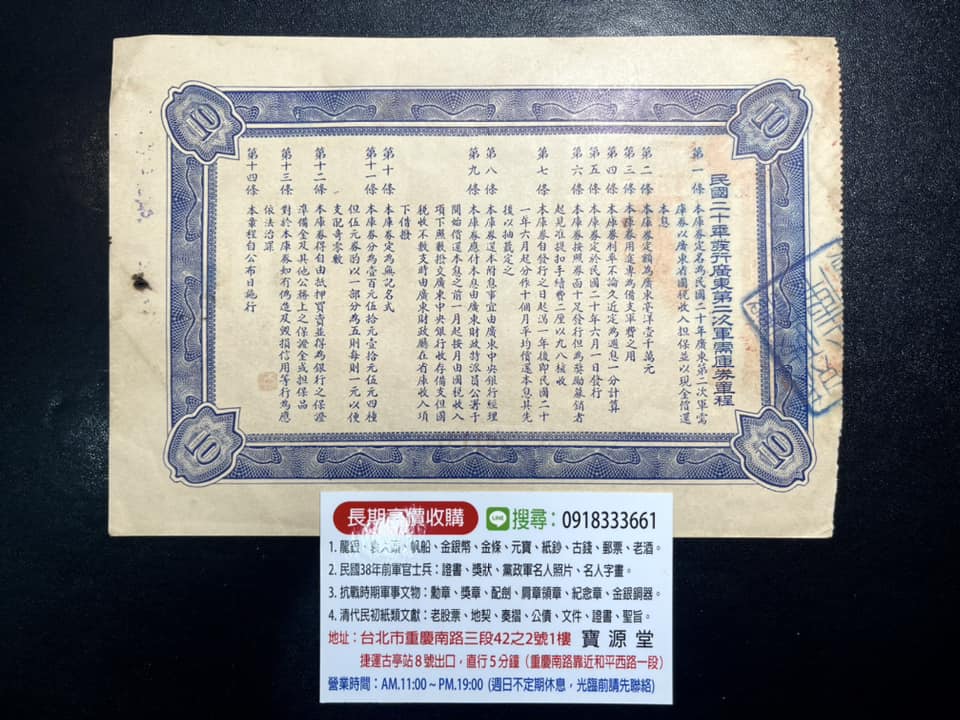 民國二十年發行廣東第二次軍需庫券章程
第一條 本庫券定名為民國二十年廣東第二次軍需
庫券以廣東省國稅收入担保並以現金償還
本息
第二條 本庫券定額為廣東毫洋壹千萬元
第三條 本庫券用途專為備支軍費之用
第四條 本庫券利率不論久近定為週息一分計算
第五條 本庫券定於民國二十年六月一日發行
第六條 本庫券按照券面十足發行但為獎勵募銷者
起見准提扣手續費二厘以九八核收
第七條 本庫券自發行之日起滿一年後即民國二十
一年六月起分作十個月平均償還本息其先
後以抽籤定之
第八條 本庫券還本附息事宜由廣東中央銀行經理
第九條 本庫券應付本息由廣東財政特派員公署于
開始償還本息之前一月起按月由國稅收入
項下照數撥交廣東中央銀行收存備支但國
稅收不敷支時由廣東財政廳在省庫收入項
下借撥
第十條 本庫券定為無記名式
第十一條 本庫券分為壹百元伍拾元壹拾元伍元四種
但伍元券酌以一部分為五則每則一元以便
支配奇零數
第十二條 本庫券得自由抵押買賣並得為銀行之保證
準備金及其他公務上之保證金或担保品
第十三條 對於本庫券如有偽造及毀損信用等行為應
依法治罪
第十四條 本章程自公布日施行
10
10
10
10
長期高價收購 LINE 搜尋：0918333661
1. 龍銀、袁大頭、帆船、金銀幣、金條、元寶、紙鈔、古錢、郵票、老酒。
2. 民國38年前軍官士兵：證書、獎狀、黨政軍名人照片、名人字畫。
3. 抗戰時期軍事文物：勳章、獎章、配劍、肩章領章、紀念章、金銀銅器。
4. 清代民初紙類文獻：老股票、地契、奏摺、公債、文件、證書、聖旨。
地址：台北市重慶南路三段42之2號1樓 寶源堂
捷運古亭站8號出口，直行5分鐘（重慶南路靠近和平西路一段）
營業時間：AM.11:00 ~ PM.19:00 (週日不定期休息，光臨前請先聯絡)